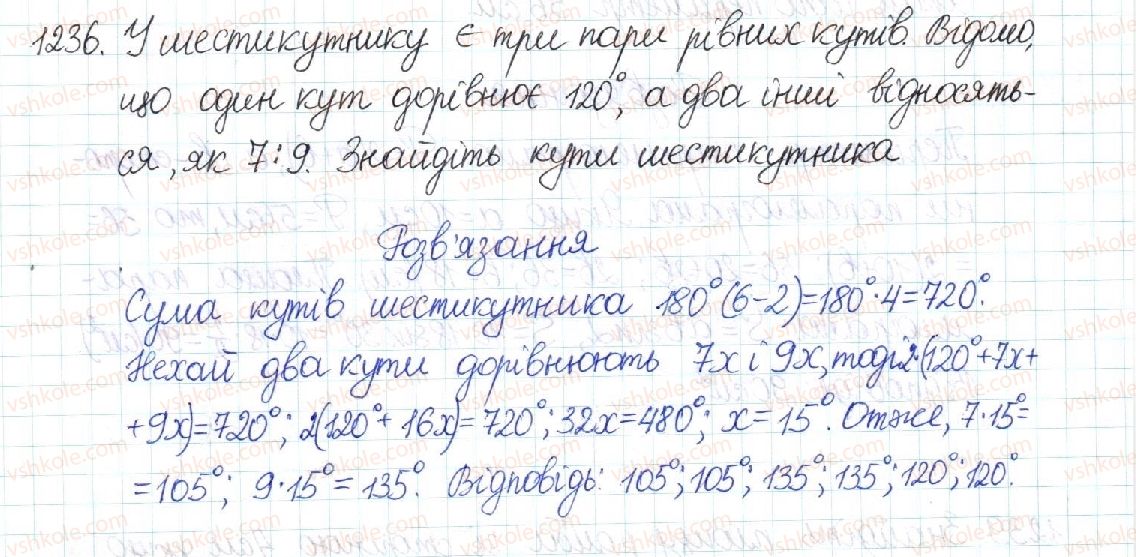 1236. У шестикутнику є три пари рівних кутів. Відомо,
що один кут дорівнює 120°, а два інші відносять-
ся, як 7:9. Знайдіть кути шестикутника
Розв'язання
Сума кутів шестикутника 180°(6-2)=180°·4=720°.
Нехай два кути дорівнюють 7x і 9x, тоді 2·(120°+7x+
+9x)=720°; 2(120°+16x)=720°; 32x=480°; x=15°. Отже, 7·15°=
=105°; 9·15°=135°. Відповідь: 105°; 105°; 135°; 135°; 120°; 120°.